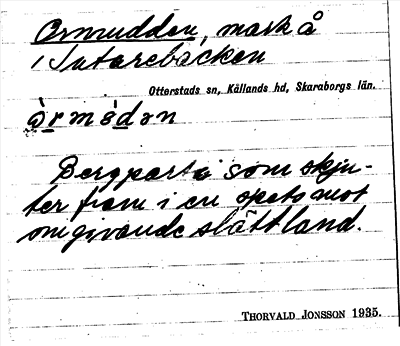 Ormudden, mark å
i Tutarebacken
Otterstads sn, Kållands hd, Skaraborgs län.
òrmúdən
Bergparti som skju-
ter fram i en spets mot
omgivande slättland.
THORVALD JONSSON 1935.